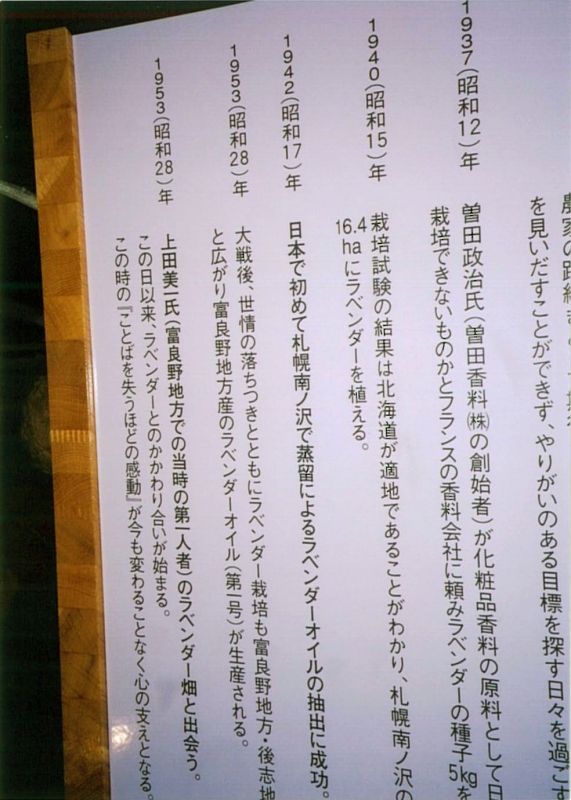 を見いだすことができず、やりがいのある目標を探す日々を過ごす
1937(昭和12)年
曽田政治氏(曽田香料㈱の創始者)が化粧品香料の原料として日
栽培できないものかとフランスの香料会社に頼みラベンダーの種子5kgを
1940(昭和15)年
栽培試験の結果は北海道が適地であることがわかり、札幌南ノ沢の
16.4haにラベンダーを植える。
1942(昭和17)年
日本で初めて札幌南ノ沢で蒸留によるラベンダーオイルの抽出に成功。
1953(昭和28)年
大戦後、世情の落ちつきとともにラベンダー栽培も富良野地方・後志地
と広がり富良野地方産のラベンダーオイル(第一号)が生産される。
1953(昭和28)年
上田美一氏(富良野地方での当時の第一人者)のラベンダー畑と出会う。
この日以来、ラベンダーとのかかわり合いが始まる。
この時の『ことばを失うほどの感動』が今も変わることなく心の支えとなる。